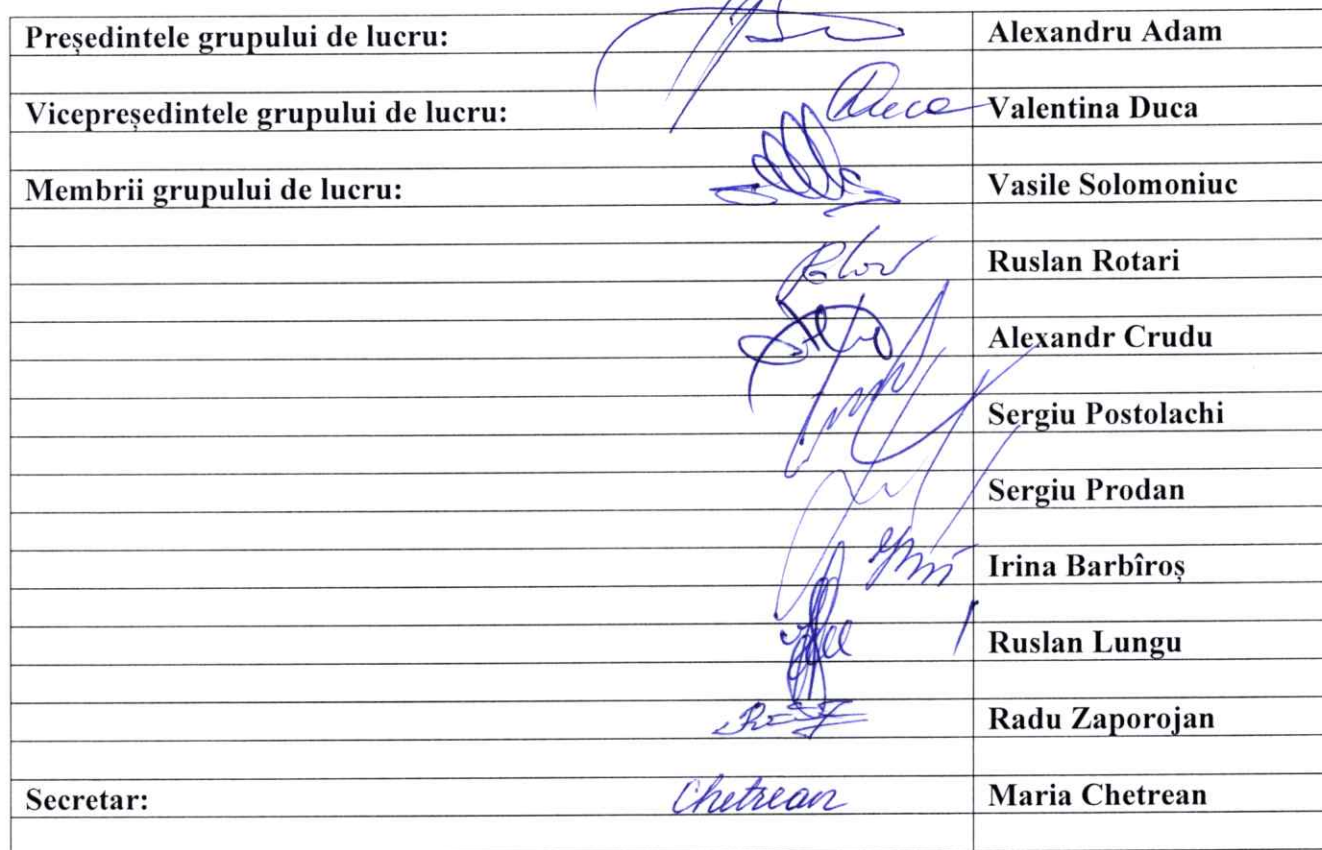 Președintele grupului de lucru: Alexandru Adam
Vicepreședintele grupului de lucru: Duca Valentina Duca
Membrii grupului de lucru: Vasile Solomoniuc
Ruslan Rotari
Alexandr Crudu
Sergiu Postolachi
Sergiu Prodan
Irina Barbîroș
Ruslan Lungu
Radu Zaporojan
Secretar: Chetrean Maria Chetrean